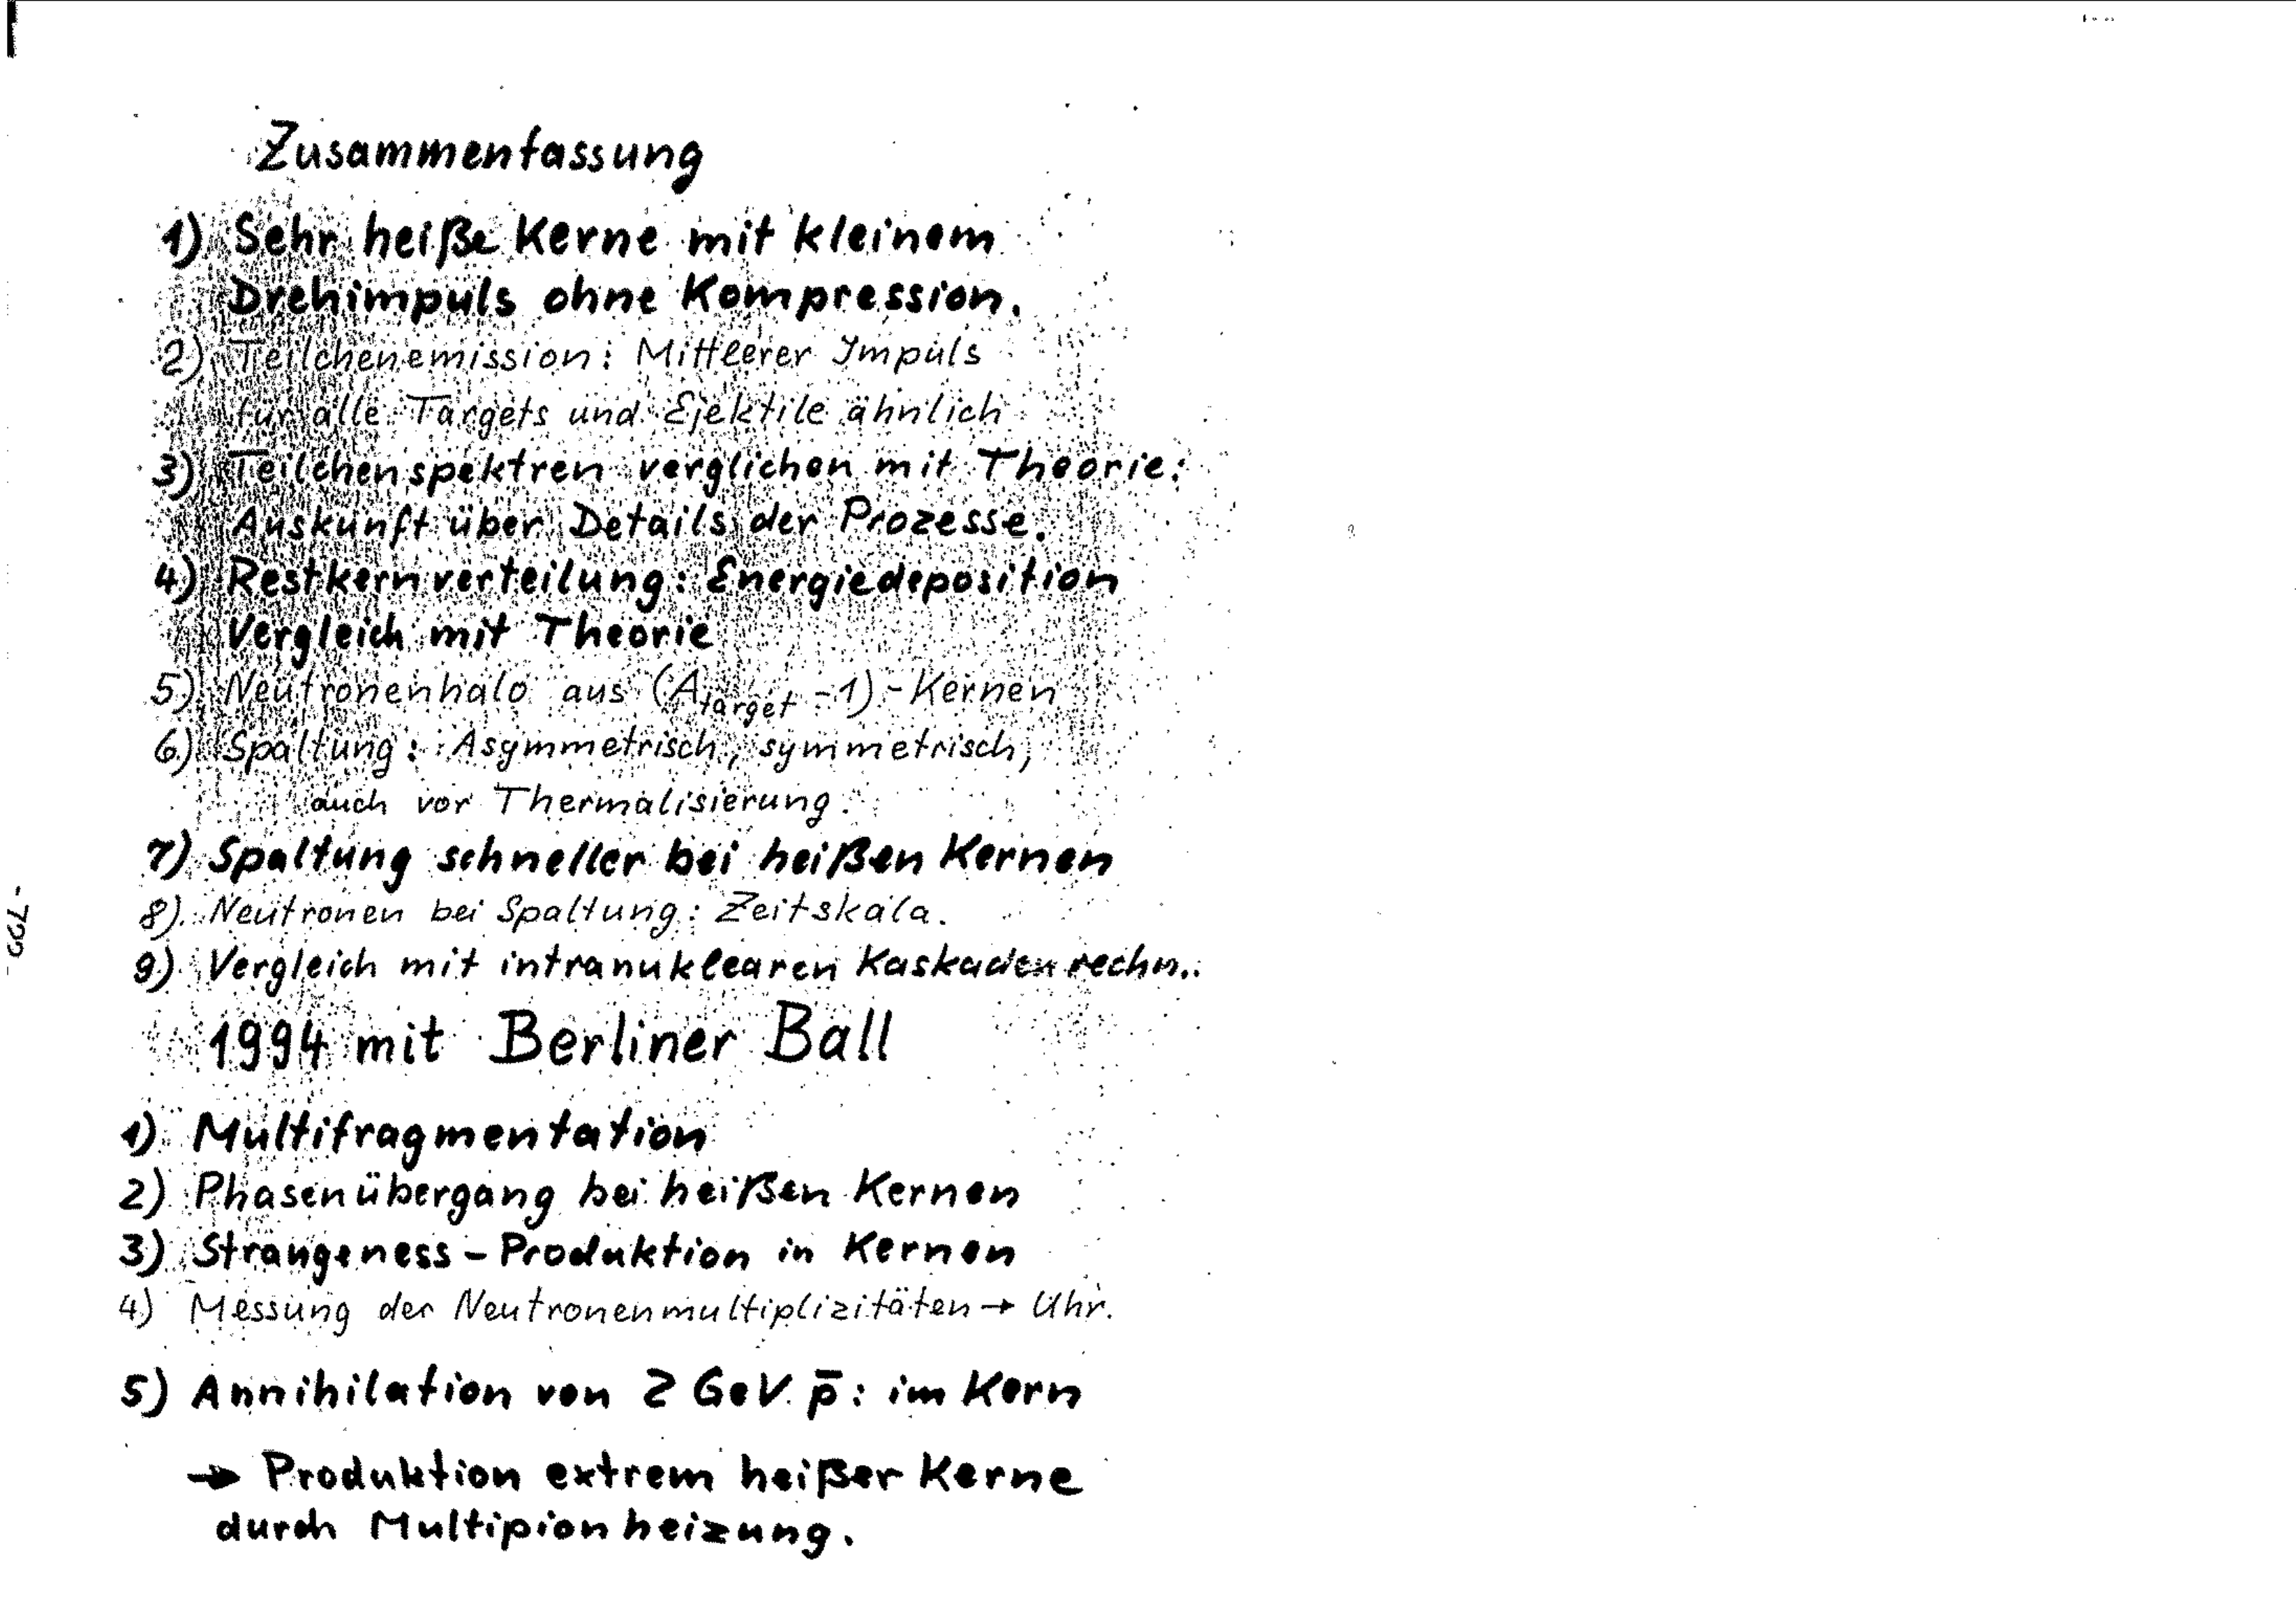 Zusammenfassung
1) Sehr heiße Kerne mit kleinem
Drehimpuls ohne Kompression.
2) Teilchenemission: Mittlerer Impuls
für alle Targets und Ejektile ähnlich
3) Teilchenspektren verglichen mit Theorie:
Auskunft über Details der Prozesse.
4) Restkernverteilung: Energiedeposition
Vergleich mit Theorie
5) Neutronenhalo aus (A_target -1)-Kernen
6) Spaltung: Asymmetrisch, symmetrisch,
auch vor Thermalisierung.
7) Spaltung schneller bei heißen Kernen
8) Neutronen bei Spaltung: Zeitskala.
9) Vergleich mit intranuklearen Kaskadenrechn.
1994 mit Berliner Ball
1) Multifragmentation
2) Phasenübergang bei heißen Kernen
3) Strangeness-Produktion in Kernen
4) Messung der Neutronenmultiplizitäten → Uhr.
5) Annihilation von 2 GeV p̄: im Kern
→ Produktion extrem heißer Kerne
durch Multipionheizung.